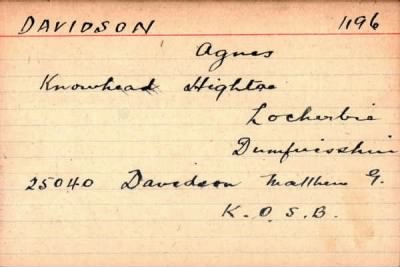 DAVIDSON 1196
Agnes
Knowhead Hightae
Locherbie
Dumfriesshire
25040 Davidson Matthew G.
K.O.S.B.